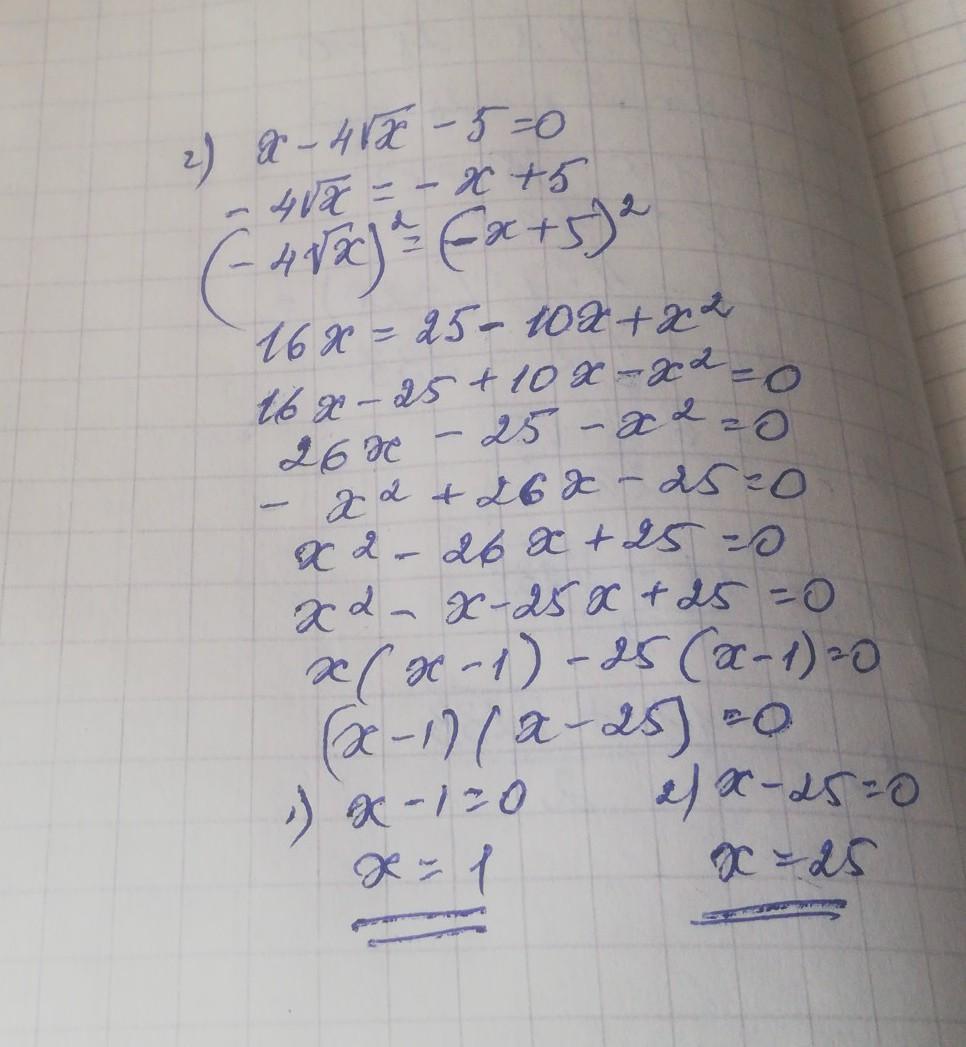 2) x - 4√x - 5 = 0
- 4√x = - x + 5
(- 4√x)² = (-x + 5)²
16x = 25 - 10x + x²
16x - 25 + 10x - x² = 0
26x - 25 - x² = 0
- x² + 26x - 25 = 0
x² - 26x + 25 = 0
x² - x - 25x + 25 = 0
x(x - 1) - 25(x - 1) = 0
(x - 1)(x - 25) = 0
1) x - 1 = 0 2) x - 25 = 0
x = 1 x = 25